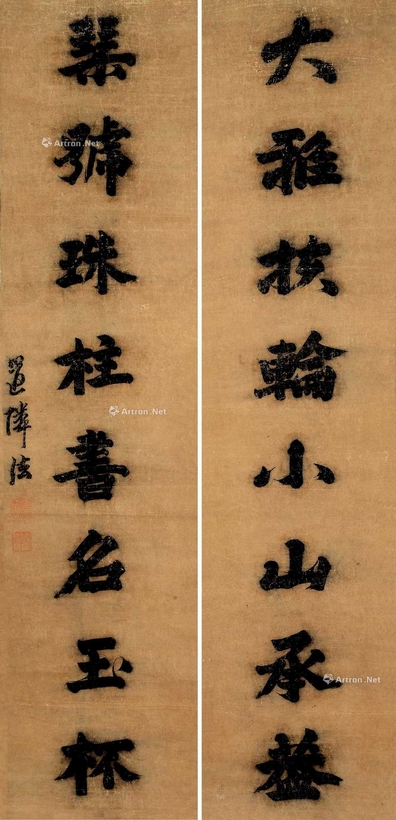 大雅扶輪小山承蓋
琴號珠柱書名玉杯
Artron.Net
Artron.Net
Artron.Net